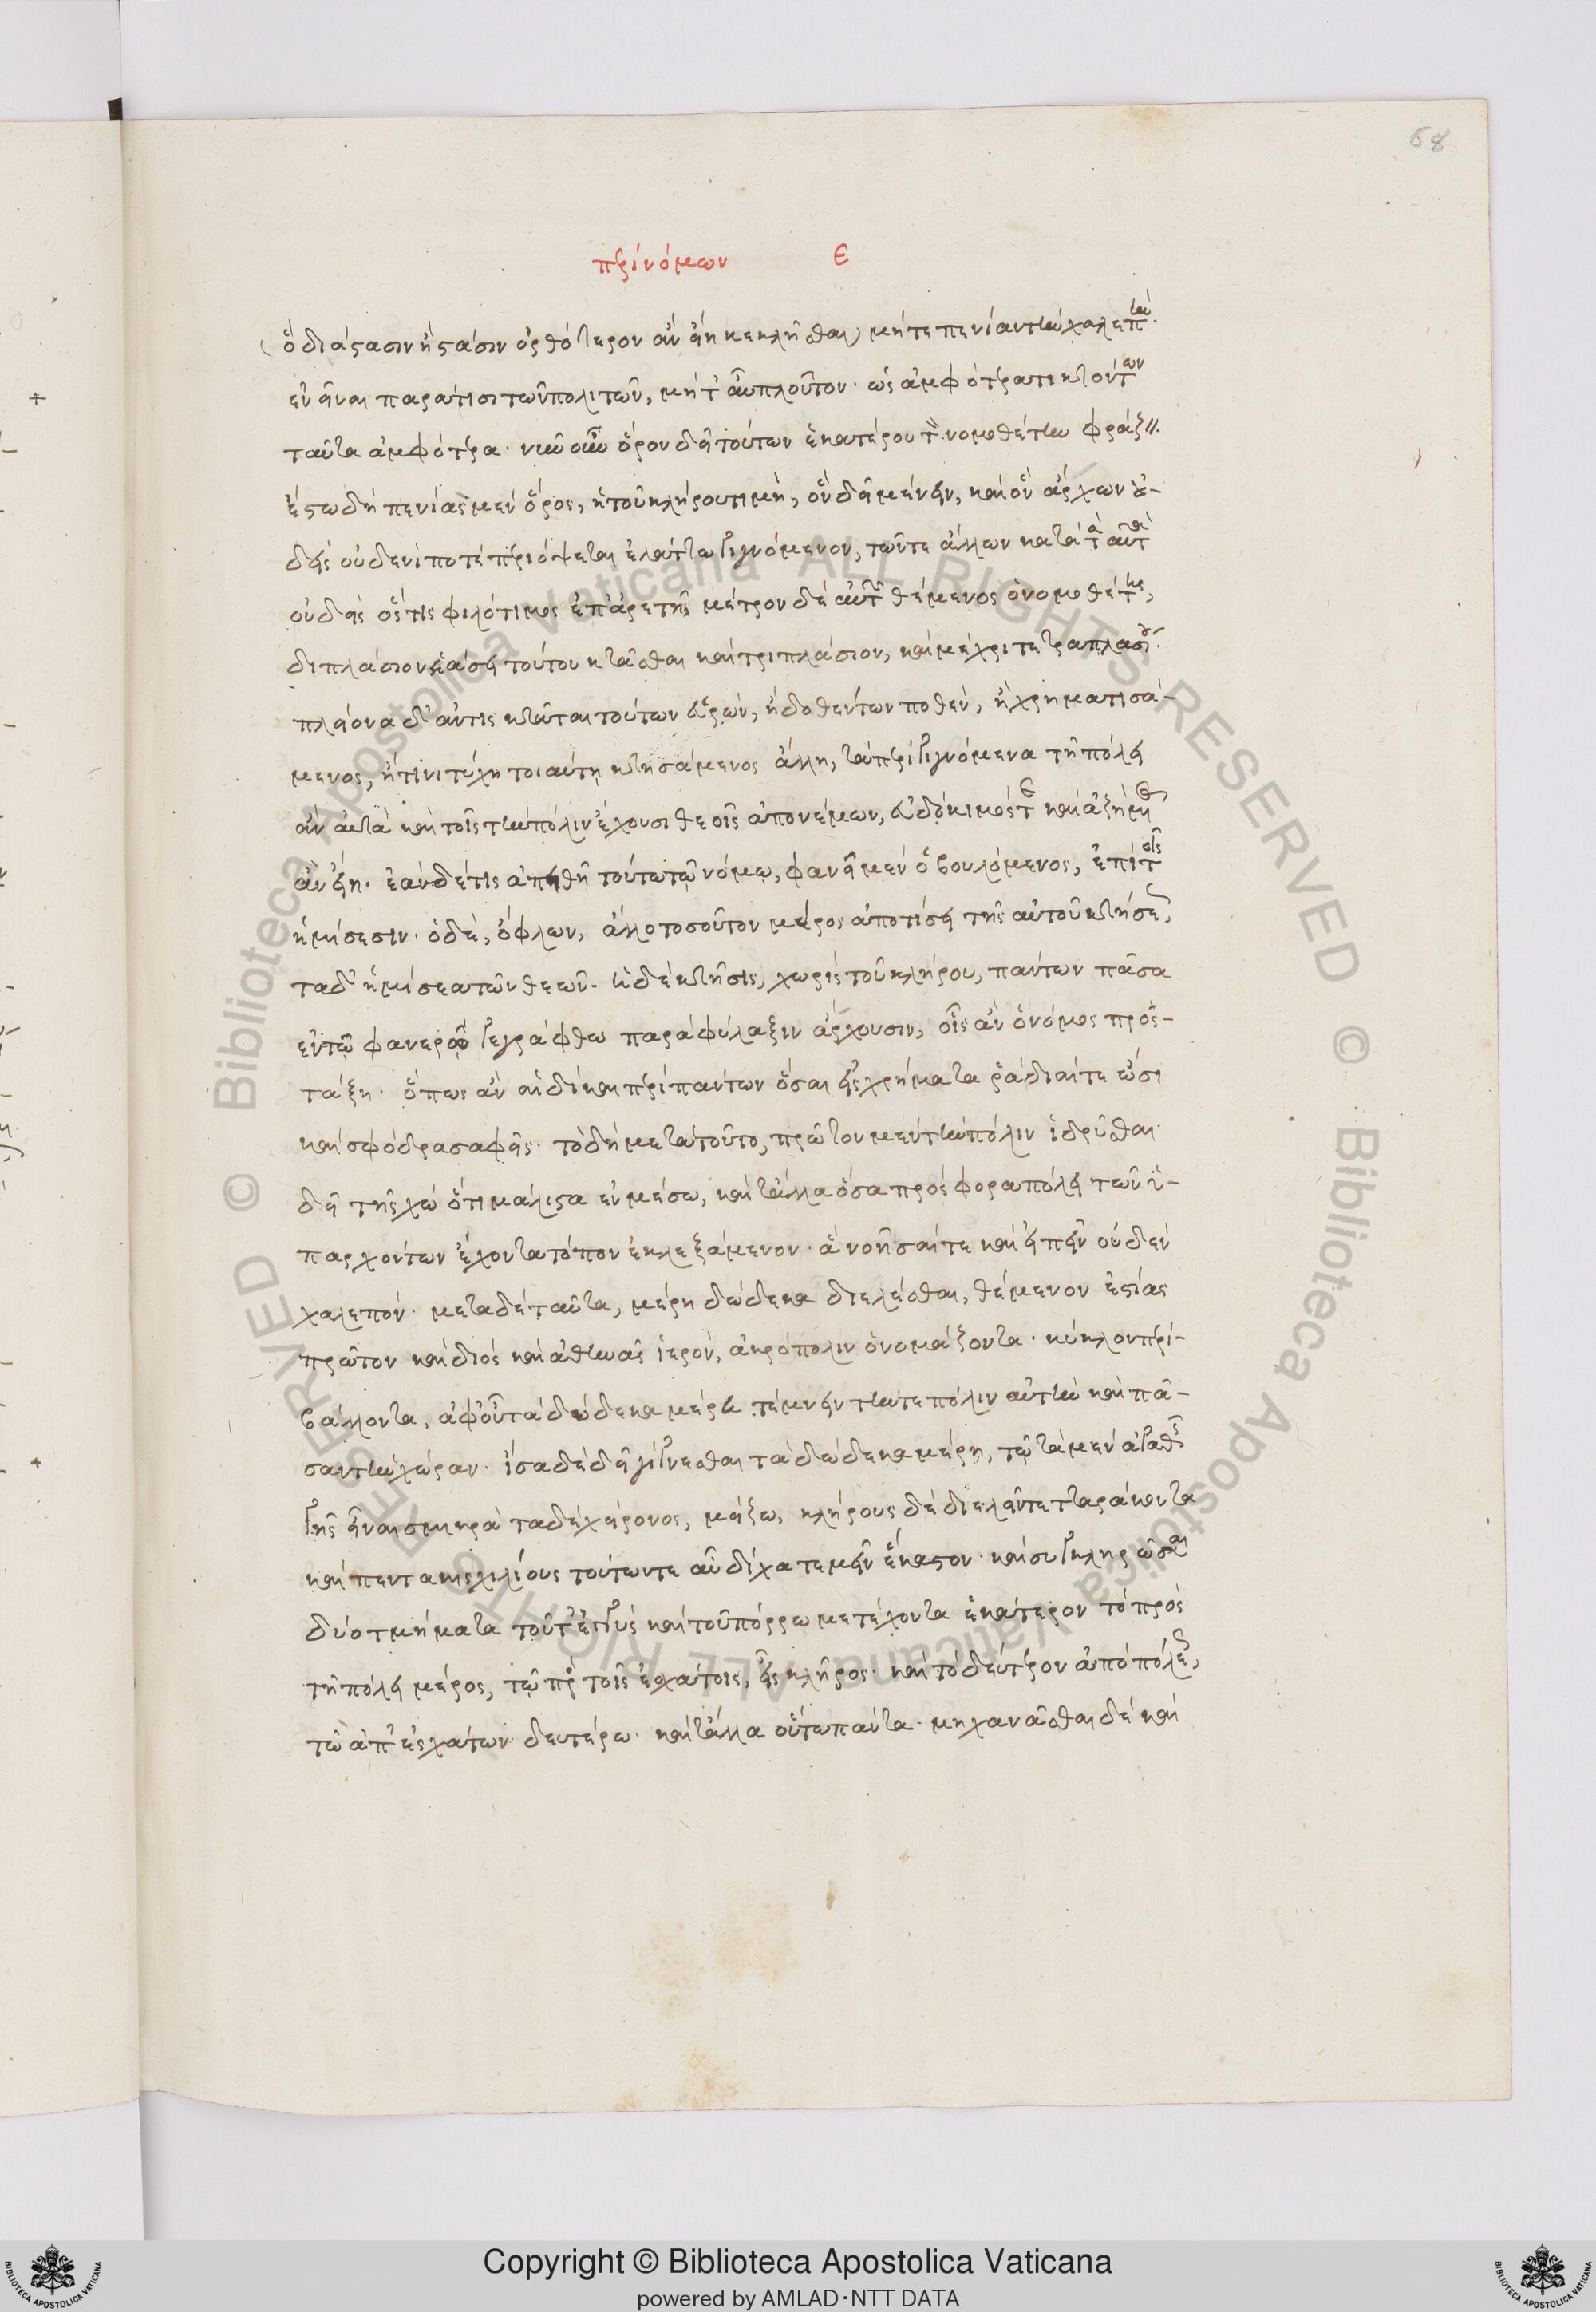 68
περὶ νόμων ε
ὃ διάστασιν ἢ στάσιν ὀρθότερον ἂν εἴη κεκλῆσθαι) μήτε πενίαν τὴν χαλεπὴν
ἐνεῖναι παρά τισι τῶν πολιτῶν, μήτ' αὖ πλοῦτον· ὡς ἀμφότερα τικτόντων
ταῦτα ἀμφότερα· νῦν οὖν ὅρον δεῖ τούτων ἑκατέρου τὸν νομοθέτην φράζειν.
ἔστω δὴ πενίας μὲν ὅρος, ἡ τοῦ κλήρου τιμὴ, ὃν δεῖ μένειν, καὶ ὃν ἄρχων οὐ-
δεὶς οὐδενί ποτε περιόψεται ἐλάττω γιγνόμενον, τῶν τε ἄλλων κατὰ τὰ αὐτὰ
οὐδεὶς ὅστις φιλότιμος ἐπ' ἀρετῇ μέτρον δὲ αὐτὸ θέμενος ὁ νομοθέτης,
διπλάσιον ἐάσει τούτου κτᾶσθαι καὶ τριπλάσιον, καὶ μέχρι τετραπλασίου·
πλείονα δ' ἄν τις κτᾶται τούτων εὑρών, ἢ δοθέντων ποθὲν, ἢ χρηματισά-
μενος, ἤ τινι τύχῃ τοιαύτῃ κτησάμενος ἄλλῃ, τὰ περιγιγνόμενα τῇ πόλει
ἂν αὐτὰ καὶ τοῖς τὴν πόλιν ἔχουσι θεοῖς ἀπονέμων, εὐδόκιμός τε καὶ ἀζήμιος
ἂν εἴη· ἐὰν δέ τις ἀπειθῇ τούτω τῷ νόμῳ, φανεῖ μὲν ὁ βουλόμενος, ἐπὶ τοῖς
ἡμίσεσιν· ὁ δὲ, ὀφλὼν, ἄλλο τοσοῦτον μέρος ἀποτίσει τῆς αὑτοῦ κτήσεως,
τὰ δ' ἡμίσεα τῶν θεῶν. ἡ δὲ κτῆσις, χωρὶς τοῦ κλήρου, πάντων πᾶσα
ἐν τῷ φανερῷ γεγράφθω παρὰ φύλαξιν ἄρχουσιν, οἷς ἂν ὁ νόμος προς-
τάξῃ· ὅπως ἂν αἱ δίκαι περὶ πάντων ὅσαι εἰς χρήματα ῥᾴδιαί τε ὦσι
καὶ σφόδρα σαφεῖς· τὸ δὴ μετὰ τοῦτο, πρῶτον μὲν τὴν πόλιν ἱδρῦσθαι
δεῖ τῆς χώ ὅτι μάλιστα ἐν μέσω, καὶ τἄλλα ὅσα πρόσφορα πόλει τῶν ὑ-
παρχόντων ἔχοντα τόπον ἐκλεξάμενον· ἃ νοῆσαί τε καὶ εἰπεῖν οὐδὲν
χαλεπόν· μετὰ δὲ ταῦτα, μέρη δώδεκα διελέσθαι, θέμενον ἑστίας
πρῶτον καὶ διὸς καὶ ἀθηνᾶς ἱερὸν, ἀκρόπολιν ὀνομάζοντα· κύκλον περι-
βάλλοντα, ἀφ' οὗ τὰ δώδεκα μέρη τέμνειν τήν τε πόλιν αὐτὴν καὶ πᾶ-
σαν τὴν χώραν· ἴσα δὲ δεῖ γίγνεσθαι τὰ δώδεκα μέρη, τῷ τὰ μὲν ἀγαθῆς
γῆς εἶναι σμικρὰ τὰ δὲ χείρονος, μείζω, κλήρους δὲ διελεῖν τετταράκοντα
καὶ πεντακισχιλίους τούτων τε αὖ δίχα τεμεῖν ἕκαστον· καὶ συγκληρῶσαι
δύο τμήματα τοῦ τ' ἐγγὺς καὶ τοῦ πόρρω μετέχοντα ἑκάτερον τὸ πρὸς
τῇ πόλει μέρος, τῷ πρὸς τοῖς ἐσχάτοις, εἷς κλῆρος· καὶ τὸ δεύτερον ἀπὸ πόλεως,
τῷ ἀπ' ἐσχάτων δευτέρω· καὶ τἄλλα οὕτω πάντα· μηχανᾶσθαι δὲ καὶ
© Biblioteca Apostolica Vaticana ALL RIGHTS RESERVED
Copyright © Biblioteca Apostolica Vaticana
powered by AMLAD·NTT DATA